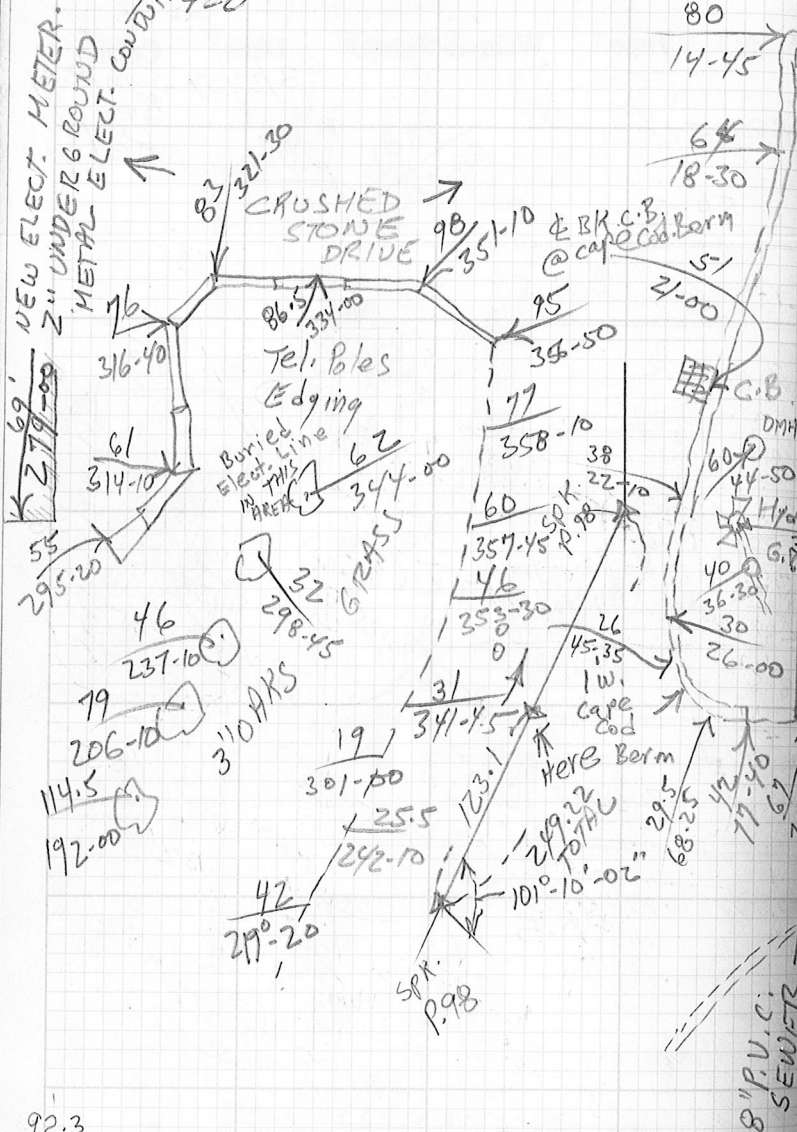 NEW ELECT. METER.
2" UNDERGROUND
METAL ELECT. CONDUIT
69'
279-00
80
14-45
64
18-30
83
321-30
CRUSHED
STONE
DRIVE
98
351-10
& BK C.B.
@ cape Cod. Berm
51
21-00
76
316-40
86.5
334-00
95
356-50
Tel. Poles
Edging
C.B.
DMH
77
358-10
61
314-10
Buried
Elect. Line
IN THIS
AREA
62
344-00
38
22-10
60
44-50
SPK.
P.98
60
357-45
Hyd
G.
55
295-20
32
298-45
GRASS
46
353-30
40
36-30
30
26-00
46
237-10
26
45-35
1 W.
Cape
Cod
Berm
79
206-10
3" OAKS
31
341-45
Here
19
301-00
114.5
192-00
123.1
29.5
68-25
42
77-40
67
25.5
242-10
249.22
TOTAL
101°-10'-02"
42
219°-20
SPK.
P.98
8" P.V.C.
SEWER
92.3